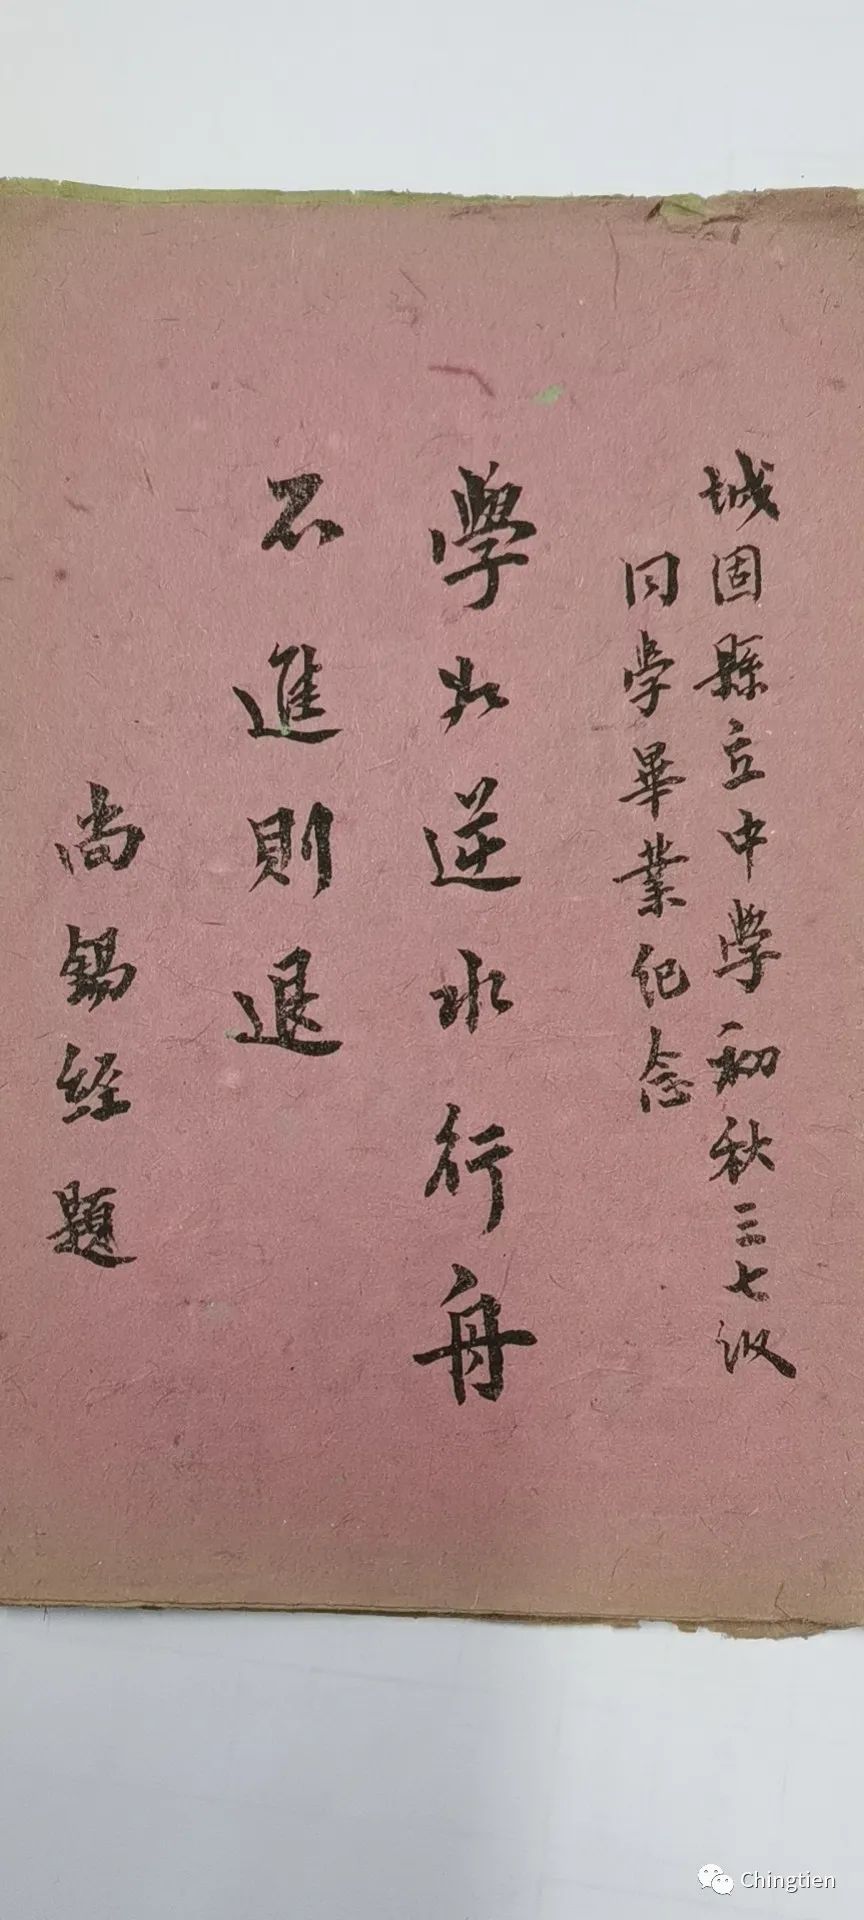 城固縣立中學初秋三七級
同學畢業纪念
學如逆水行舟
不進則退
尚錫经題
Chingtien